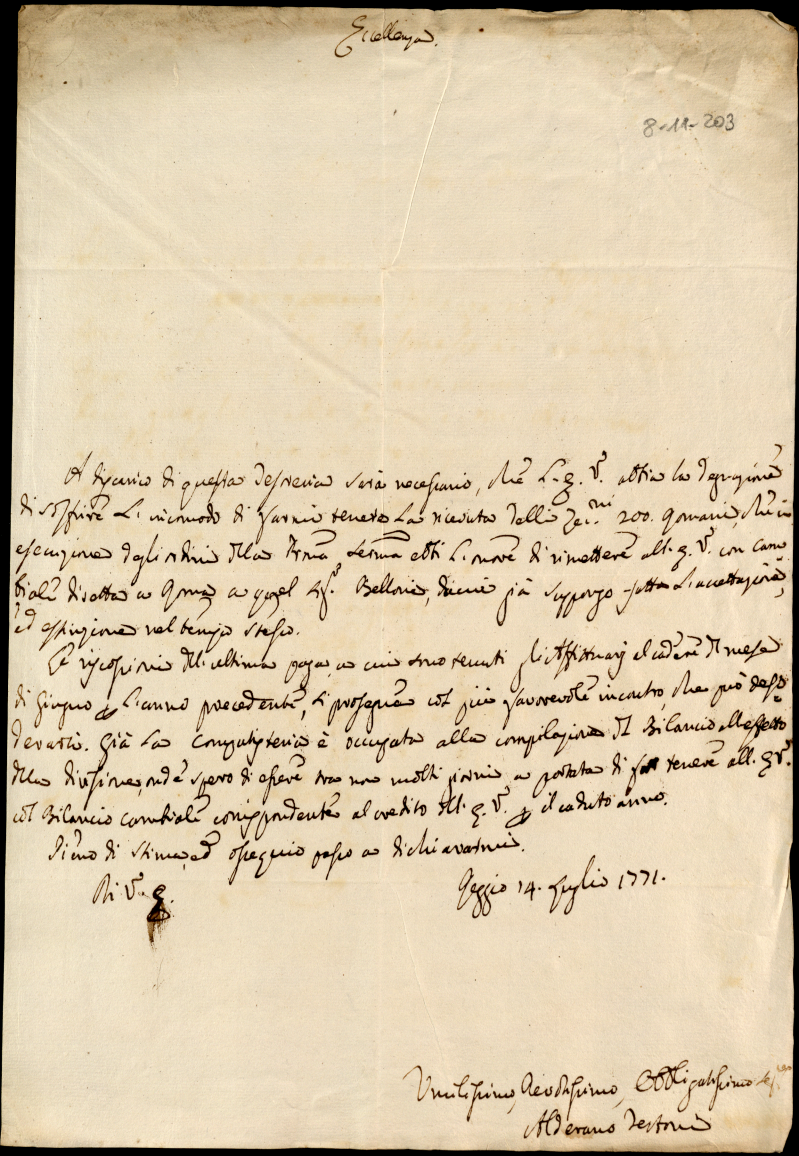 Eccellenza.
8-11-203
A discarico di questa Tesoreria sarà necessario, che L'E. V. abbia la degnazione
di soffrire L'incomodo di farmi tenere La ricevuta delli Zec.ni 200. Romani, che in
esecuzione degli ordini della Serma ebbi L'onore di rimettere all'E. V. con cam
biale diretta a Roma a quel Belloni, di cui già suppongo fatta L'accettazione,
ed estinzione nel tempo stesso.
La riscossione dell'ultima paga, a cui sono tenuti gli Affittuarj al cadere del mese
di Giugno p L'anno precedente, si prosegue col più favorevole incontro, che può desi-
derarsi. Già La Computisteria è occupata alla compilazione del Bilancio all'effetto
della divisione, onde spero di essere tra non molti giorni a portata di far tenere all'E. V.
col Bilancio cambiale corrispondente al credito dell'E. V. p il caduto anno.
Pieno di stima, ed ossequio passo a dichiararmi.
Di V. E.
Reggio 14. Luglio 1771.
Umilissimo, Devotissimo, Obbligatissimo
Alderano Pestoni